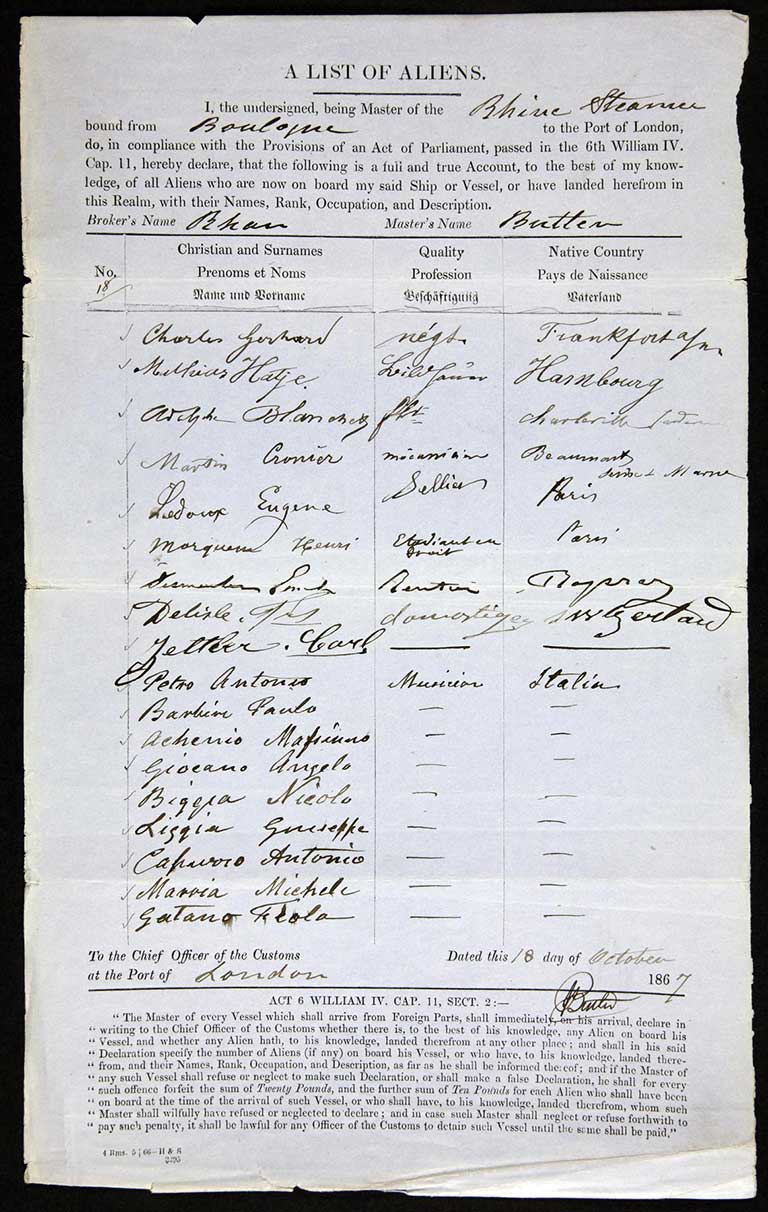 A LIST OF ALIENS.
I, the undersigned, being Master of the Rhine Steamer
bound from Boulogne to the Port of London,
do, in compliance with the Provisions of an Act of Parliament, passed in the 6th William IV.
Cap. 11, hereby declare, that the following is a full and true Account, to the best of my know-
ledge, of all Aliens who are now on board my said Ship or Vessel, or have landed herefrom in
this Realm, with their Names, Rank, Occupation, and Description.
Broker's Name Master's Name Butler
Christian and Surnames Quality Native Country
No. Prenoms et Noms Profession Pays de Naissance
18 Name und Vorname Beschäftigung Vaterland
Charles Gerhard négt. Frankfort a/m.
Hatje Hambourg
Adolphe Blanchet Charleville
Martin Cronier mécanicien Beaumont
Seine et Marne
Ledoux Eugene Sellier Paris
Henri Etudiant en Droit Paris
Rentier
Delisle domestique Switzerland
Zettler Carl — —
Petro Antonio Musicien Italia
Barbieri Paulo — —
Achenio Massimo — —
Giocano Angelo — —
Biggia Nicolo — —
Liggia Guiseppe — —
Capurro Antonio — —
Marria Michele — —
Gatano Feola — —
To the Chief Officer of the Customs Dated this 18 day of October
at the Port of London 1867
Butler
ACT 6 WILLIAM IV. CAP. 11, SECT. 2:—
"The Master of every Vessel which shall arrive from Foreign Parts, shall immediately, on his arrival, declare in
" writing to the Chief Officer of the Customs whether there is, to the best of his knowledge, any Alien on board his
" Vessel, and whether any Alien hath, to his knowledge, landed therefrom at any other place; and shall in his said
" Declaration specify the number of Aliens (if any) on board his Vessel, or who have, to his knowledge, landed there-
" from, and their Names, Rank, Occupation, and Description, as far as he shall be informed thereof; and if the Master of
" any such Vessel shall refuse or neglect to make such Declaration, or shall make a false Declaration, he shall for every
" such offence forfeit the sum of Twenty Pounds, and the further sum of Ten Pounds for each Alien who shall have been
" on board at the time of the arrival of such Vessel, or who shall have, to his knowledge, landed therefrom, whom such
" Master shall wilfully have refused or neglected to declare; and in case such Master shall neglect or refuse forthwith to
" pay such penalty, it shall be lawful for any Officer of the Customs to detain such Vessel until the same shall be paid."
4 Rms. 5 | 66—H & S
2395